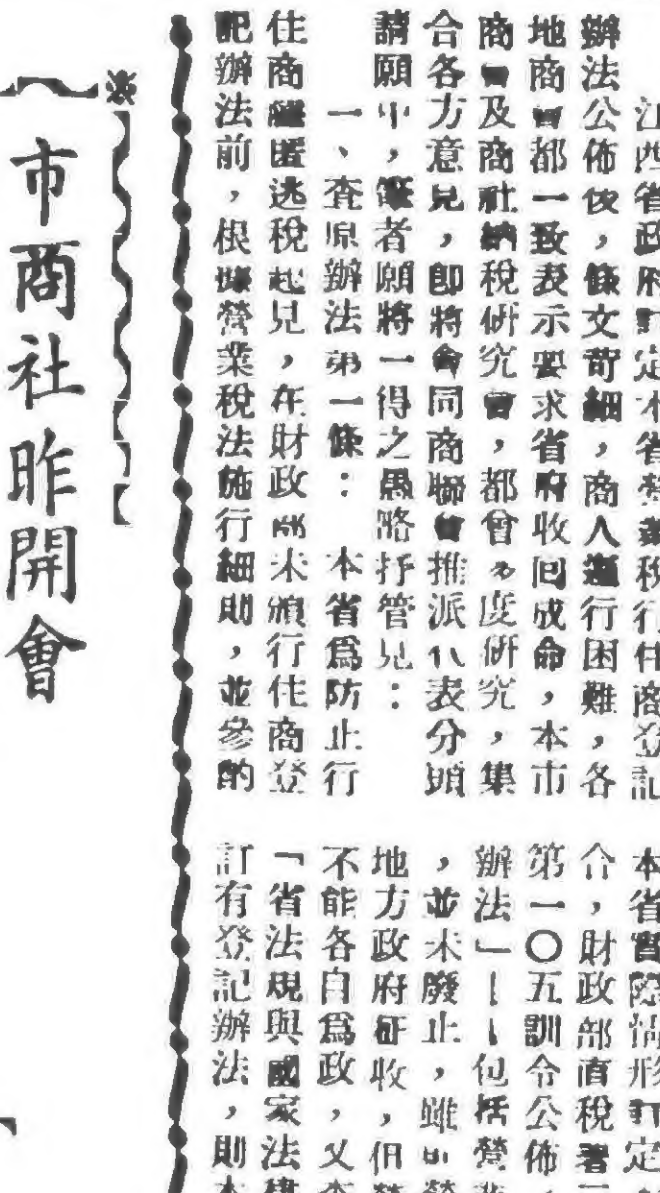 江西省政府訂定本省營業稅行住商登記
辦法公佈後，條文苛細，商人遵行困難，各
地商會都一致表示要求省府收回成命，本市
商會及商社納稅研究會，都曾多度研究，集
合各方意見，即將會同商聯會推派代表分頭
請願中，筆者願將一得之愚略抒管見：
一、查原辦法第一條：　本省爲防止行
住商隱匿逃稅起見，在財政部未頒行住商登
記辦法前，根據營業稅法施行細則，並參酌
本省實際情形訂定
合，財政部直稅署
第一〇五訓令公佈
辦法」——包括營業
，並未廢止，雖
地方政府征收，但
不能各自爲政，又查
「省法規與國家法律
訂有登記辦法，則本
市商社昨開會